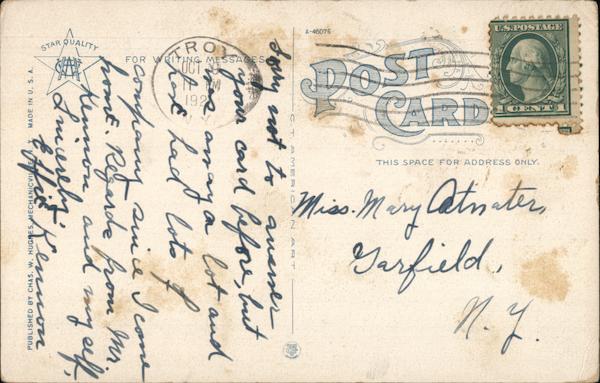 STAR QUALITY
FOR WRITING MESSAGES
MADE IN U.S.A.
PUBLISHED BY CHAS. W. HUGHES, MECHANICVILLE,
Sorry not to answer
your card before, but
was away a lot and
have had lots of
company since I come
home. Regards from Mr.
Lennon and myself,
Sincerely,
Effie Lennon
TROY
OCT
PM
A-46076
POST
CARD
THIS SPACE FOR ADDRESS ONLY.
U.S. POSTAGE
1 CENT 1
Miss. Mary Atwater,
Garfield,
N.Y.